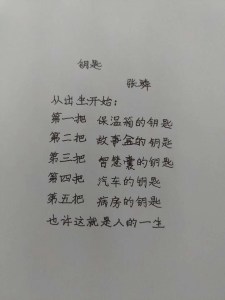 钥匙
张骅
从出生开始：
第一把 保温箱的钥匙
第二把 故事盒的钥匙
第三把 智慧囊的钥匙
第四把 汽车的钥匙
第五把 病房的钥匙
也许这就是人的一生